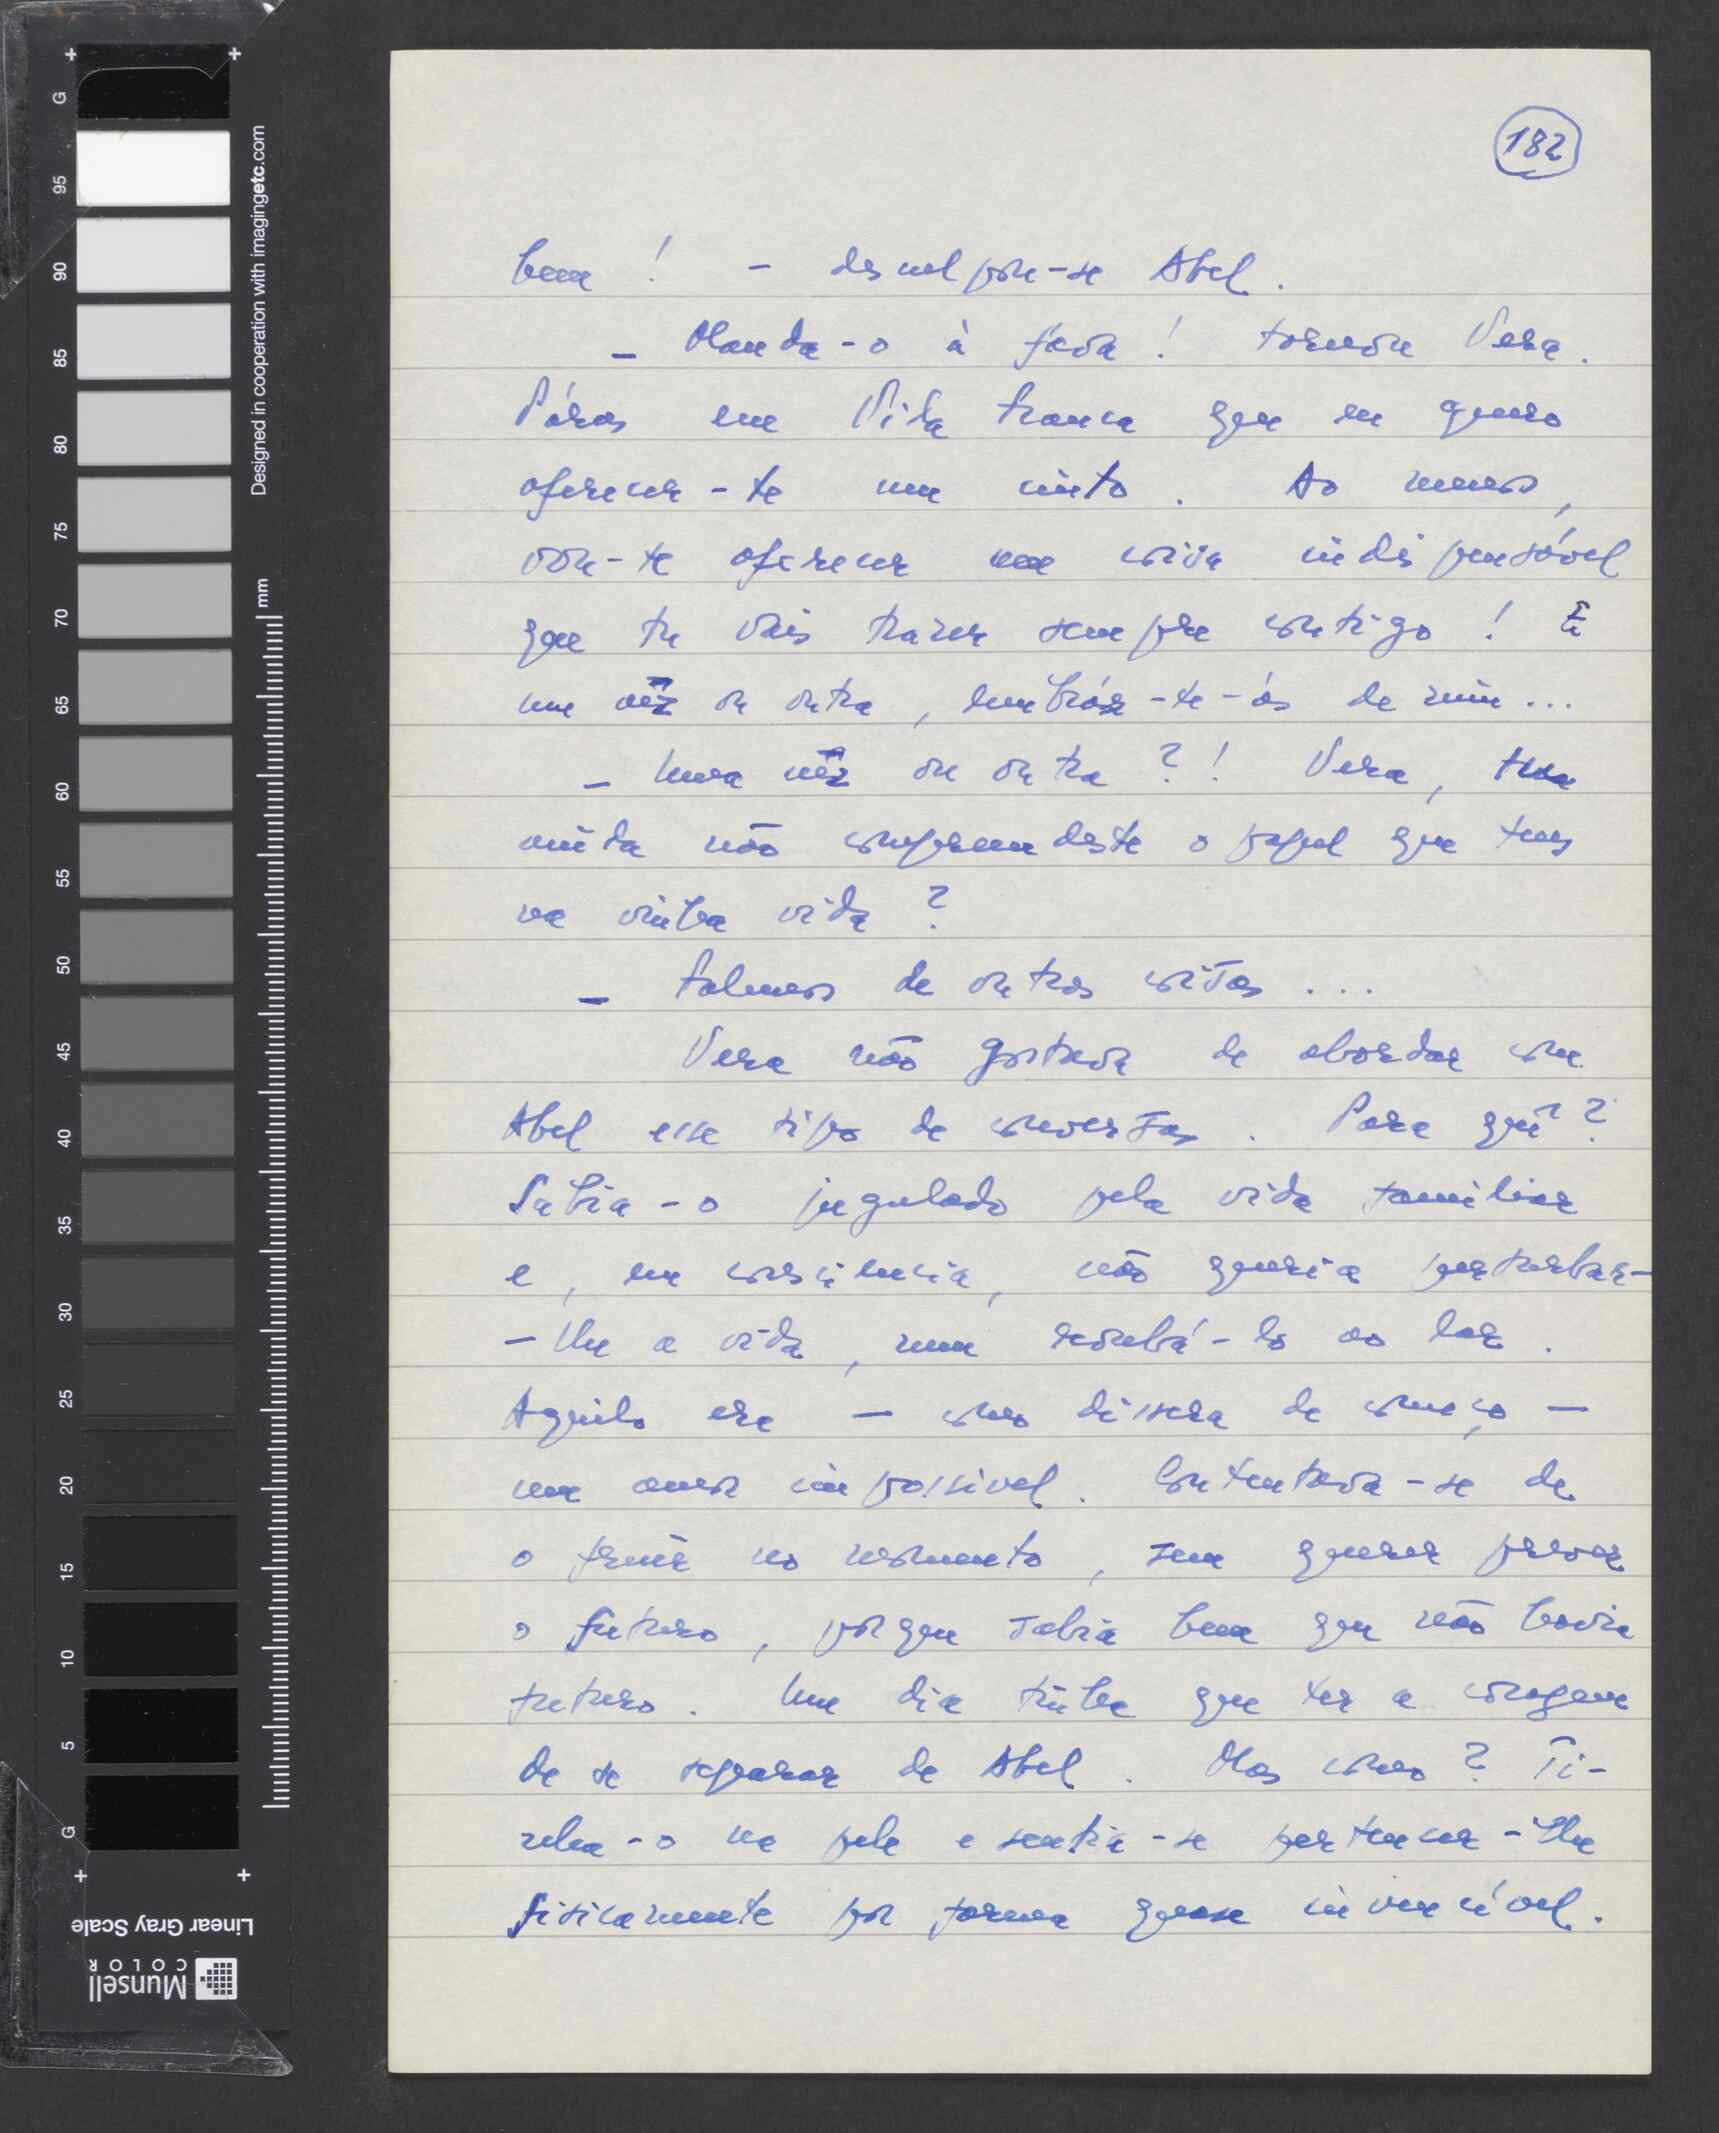 182
bem! – desculpou-se Abel.
– Manda-o à fava! tornou Vera.
Páras em Vila Franca que eu quero
oferecer-te um cinto. Ao menos,
vou-te oferecer uma coisa indispensável
que tu vais trazer sempre contigo! E
uma vêz ou outra, lembrár-te-ás de mim...
– Uma vêz ou outra?! Vera,
ainda não compreendeste o papel que tens
na minha vida?
– Falemos de outras coisas...
Vera não gostava de abordar com
Abel esse tipo de conversas. Para quê?
Sabia-o jugulado pela vida familiar
e, em consciência, não queria perturbar-
-lhe a vida, nem roubá-lo ao lar.
Aquilo era – como dissera de começo –
um amor impossivel. Contentava-se de
o fruir no momento, sem querer prever
o futuro, porque sabia bem que não havia
futuro. Um dia tinha que ter a coragem
de se separar de Abel. Mas como? Ti-
nha-o na pele e sentia-se pertencer-lhe
fisicamente por forma quase invencível.
Designed in cooperation with imagingetc.com
mm
G
95
90
85
80
75
70
65
60
55
50
45
40
35
30
25
20
15
10
5
G
Linear Gray Scale
Munsell
COLOR